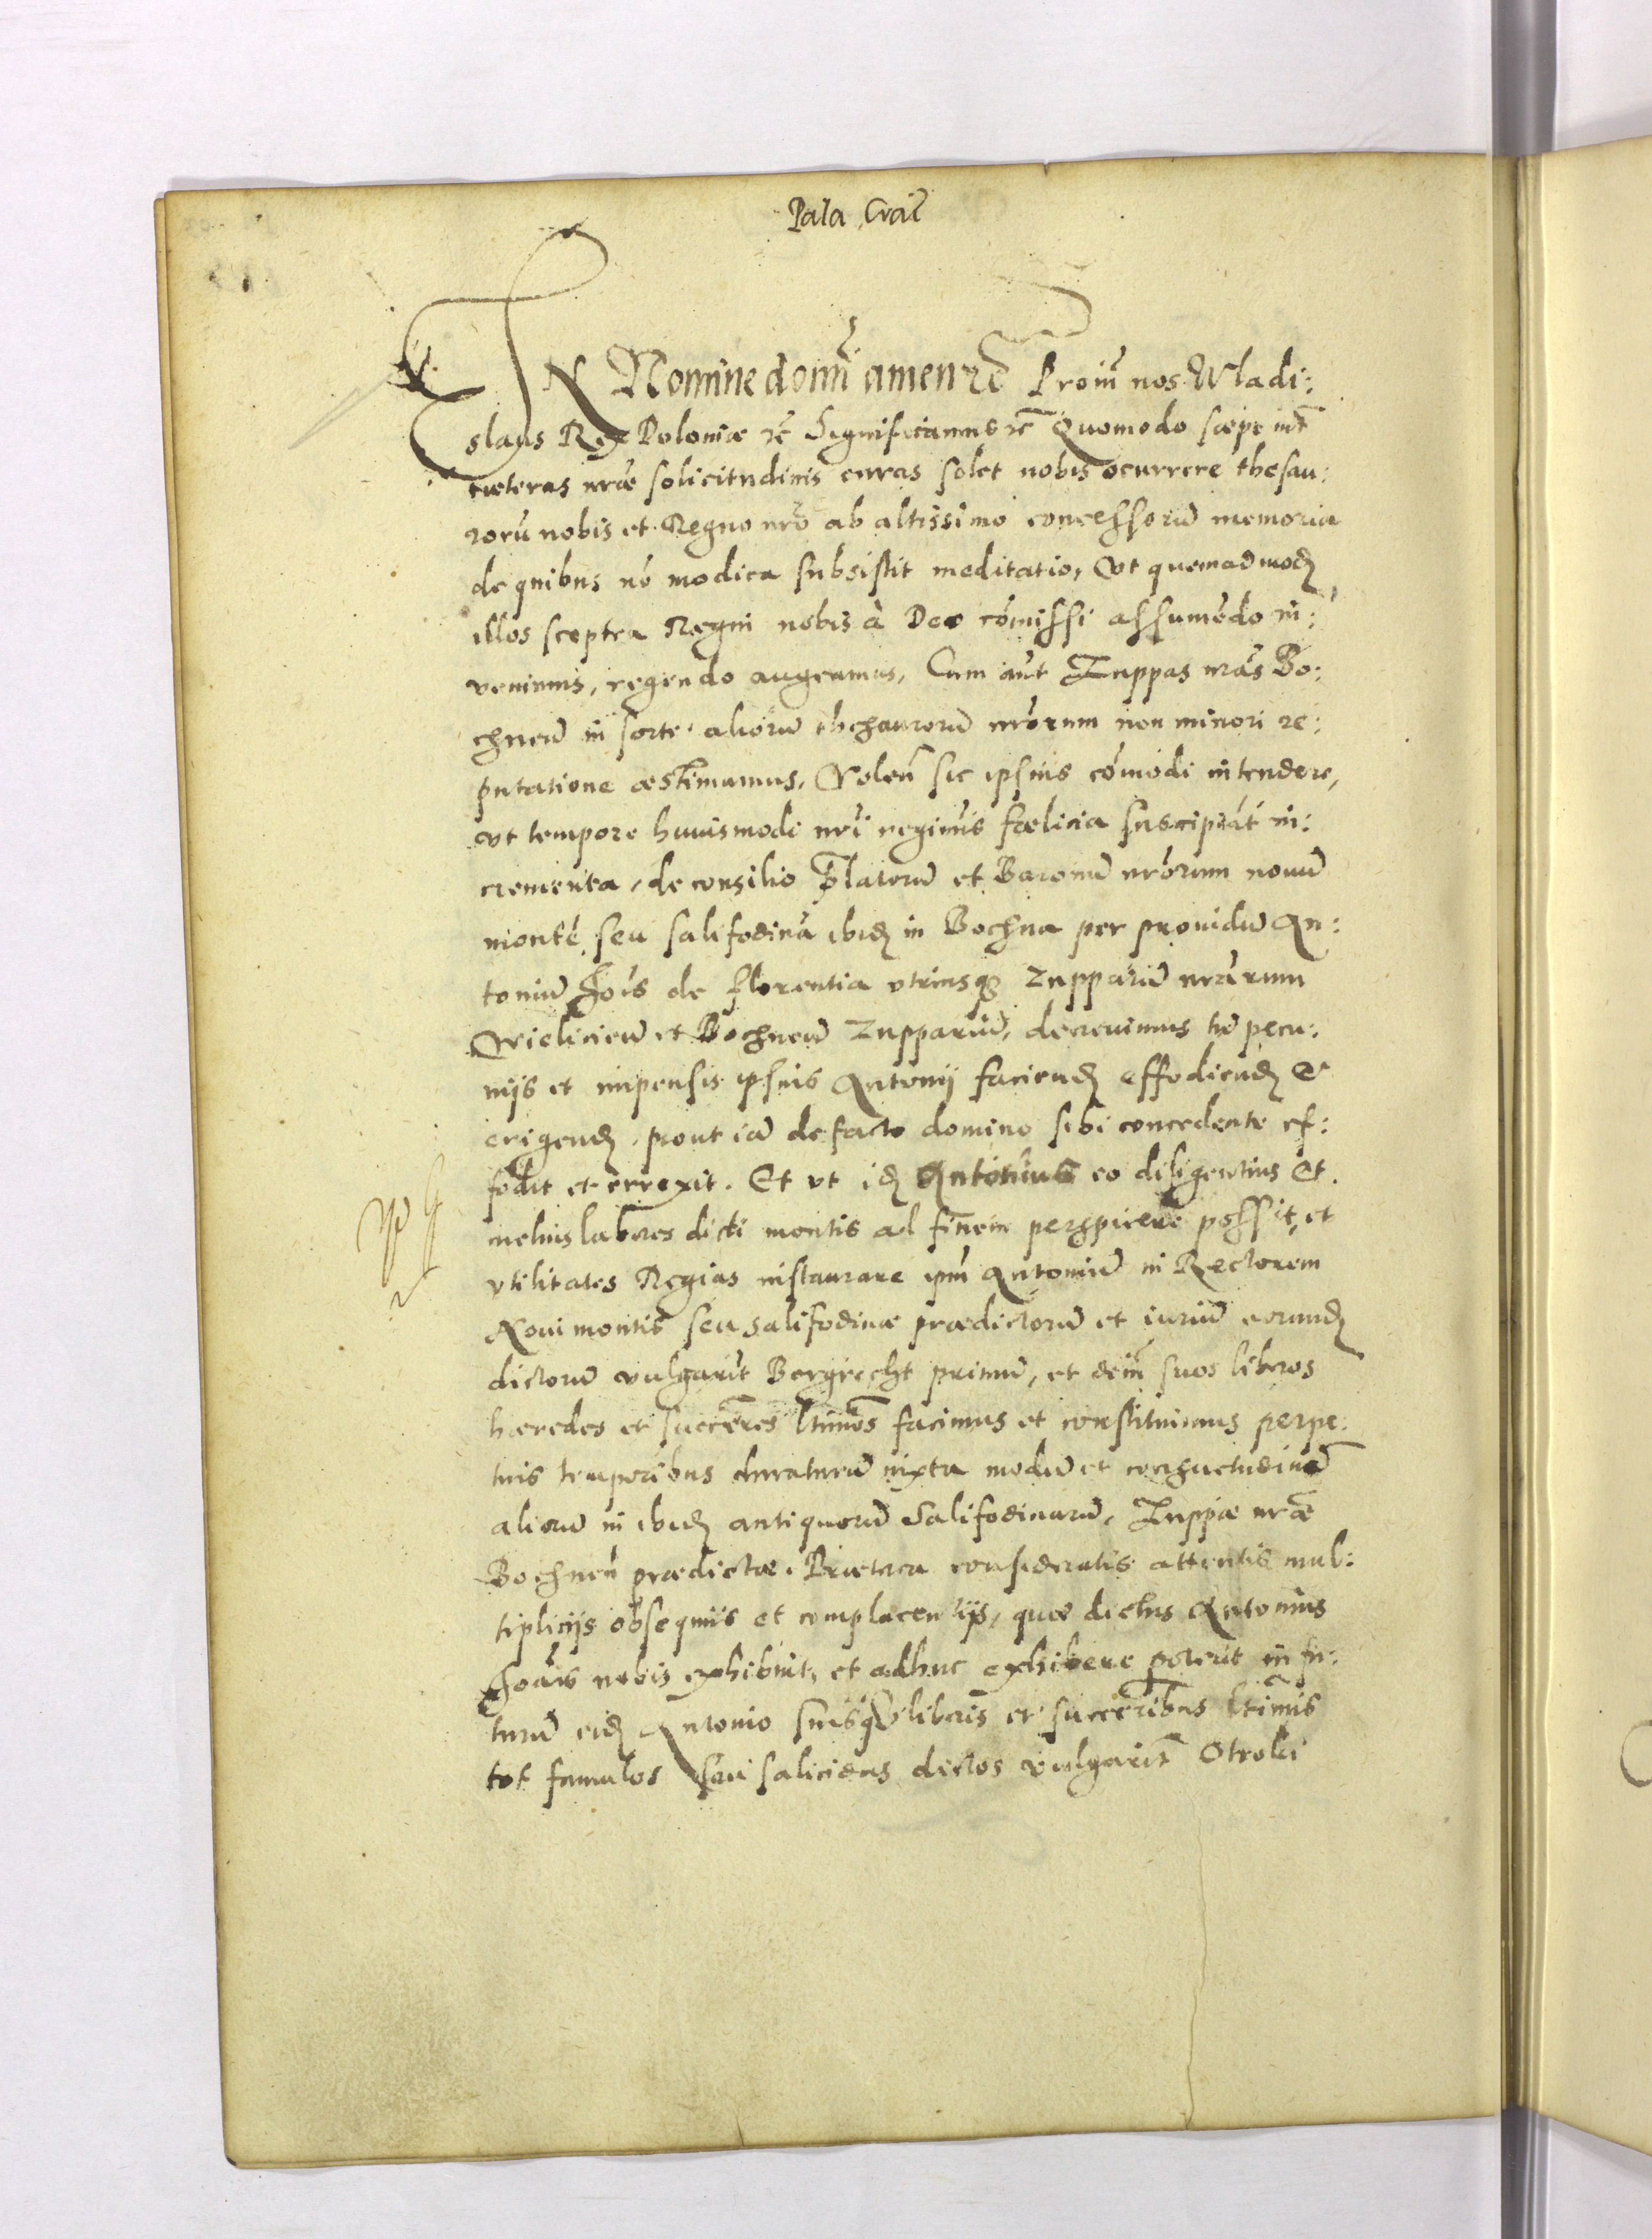 Pala Craĉ
IN Nomine domĩ amen ꝛc̃ Proiñ nos Wladi:
slaus Rex Poloniæ ꝛc̃ Significamus ꝛc̃ Quomodo sæpe int̃
cæteras nr̃æ solicitudinis curas solet nobis ocurrere thesau:
rorũ nobis et Regno nr̃o ab altissimo concessorũ memoria
de quibus nõ modica subsistit meditatio, Vt quemadmodȝ
illos sceptra Regni nobis à Deo cõmissi assumẽdo in:
venimus, regendo augeamus, Cum aũt Zuppas nr̃as Bo:
chneñ in sorte aliorũ thezaurorũ nr̃orum non minori re:
putatione æstimamus, Voleñ sic ipsius cõmodi intendere,
vt tempore huiusmodi nr̃i regimĩs fœlicia suscipiãt in:
crementa, de consilio p̃latorũ et Baronũ nr̃orum nouũ
montẽ seu salifodinã ibidȝ in Bochna per prouidũ An:
toniũ Joĩs de florentia vtriusqȝ Zupparũ nr̃arum
Wieliciẽn et Bochneñ Zuppariũ, decreuimus suis pecu:
nijs et impensis ipsius Antonij faciendȝ effodiendȝ &
erigendȝ, prout iã de facto domino sibi concedente ef:
fodit et errexit. Et vt idȝ Antonius eo diligentius Et
melius labores dicti montis ad finem perspicere possit, et
vtilitates Regias instaurare ip̃m Antoniũ in Rectorem
Noui montis seu salifodinæ prædictorũ et iuriũ eorundȝ
dictorũ vulgarit̃ Bergrecht primũ, et deiñ suos liberos
hæredes et succr̃es ltimõs facimus et constituimus perpe:
tuis temporibus duraturũ iuxta modũ et consuetudinẽ
aliorũ in ibidȝ antiquorũ Salifodinarũ, Zuppæ nr̃æ
Bochneñ prædictæ. Præterea consideratis attentis mul:
tiplicijs obsequiis et complacentijs, quæ dictus Antonius
Joãis nobis exhibuit, et adhuc exhibere poterit in fu:
turũ eidȝ Antonio suisqȝ liberis et succr̃ibus ltimis
tot famulos seu salicidas dictos vulgarit̃ Otroki